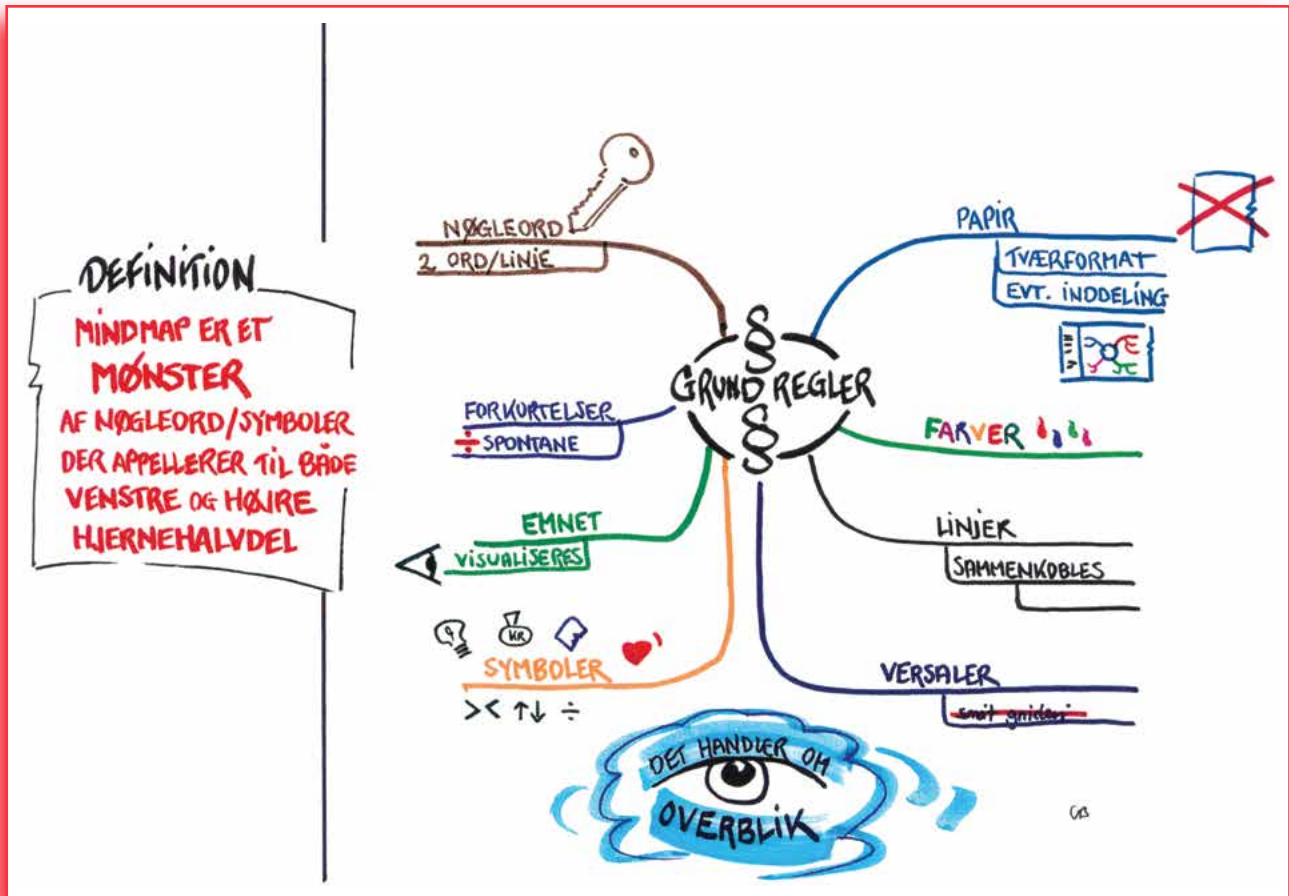 DEFINITION
MINDMAP ER ET
MØNSTER
AF NØGLEORD/SYMBOLER
DER APPELLERER TIL BÅDE
VENSTRE OG HØJRE
HJERNEHALVDEL
NØGLEORD
2 ORD/LINJE
FORKORTELSER
÷ SPONTANE
EMNET
VISUALISERES
KR
SYMBOLER
>< ↑↓ ÷
§
§
GRUND REGLER
§
§
PAPIR
TVÆRFORMAT
EVT. INDDELING
FARVER
LINJER
SAMMENKOBLES
VERSALER
småt gnideri
DET HANDLER OM
OVERBLIK